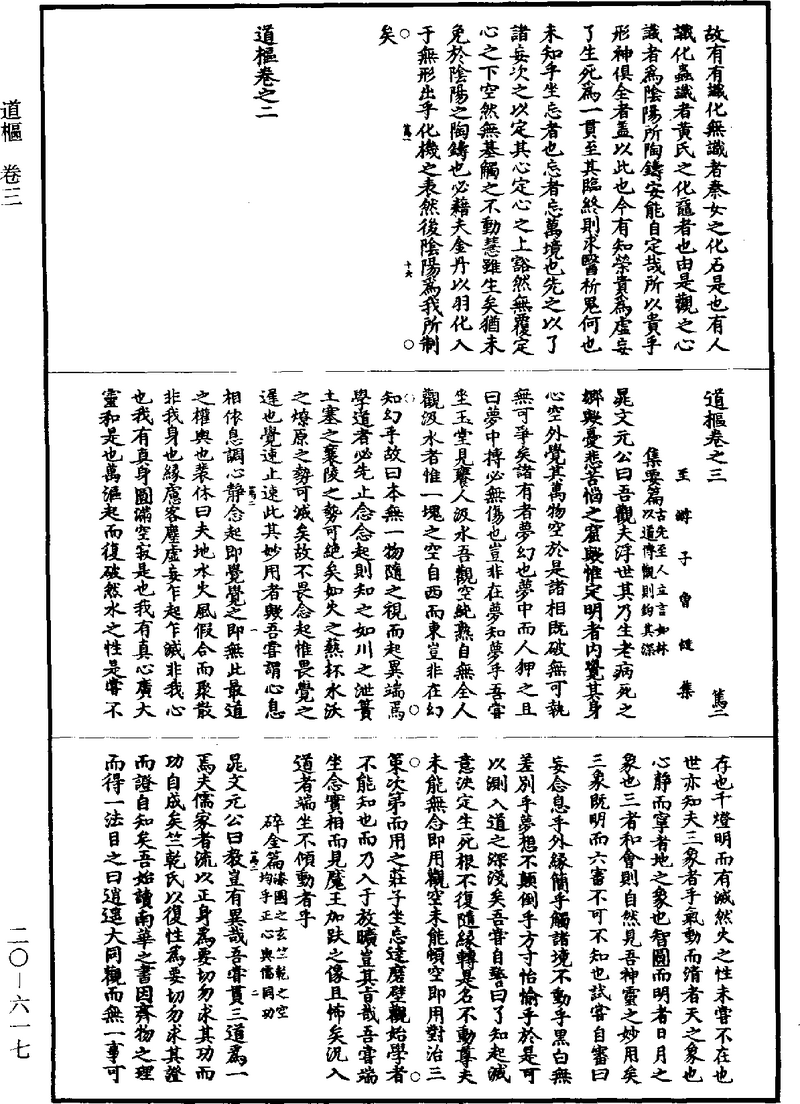 道樞　卷三
二〇—六一七
故有有識化無識者秦女之化石是也有人
識化蟲識者黃氏之化黿者也由是觀之心
識者爲陰陽所陶鑄安能自定哉所以貴乎
形神俱全者蓋以此也今有知榮貴爲虛妄
了生死爲一貫至其臨終則求醫祈鬼何也
未知乎坐忘者也忘者忘萬境也先之以了
諸妄次之以定其心定心之上豁然無覆定
心之下空然無基觸之不動慧雖生矣猶未
免於陰陽之陶鑄也必藉夫金丹以羽化入
于無形出乎化機之表然後陰陽爲我所制
矣
篤一
十六
道樞卷之二
道樞卷之三
篤二
至游子曾慥集
集要篇古先至人立言如林以道傳觀則鈎其深
晁文元公曰吾觀夫浮世其乃生老病死之
鄉歟憂悲苦惱之窟歟惟定明者內覺其身
心空外覺其萬物空於是諸相既破無可執
無可爭矣諸有者夢幻也夢中而人狎之且
曰夢中摶必無傷也豈非在夢知夢乎吾嘗
坐玉堂見饔人汲水吾觀空純熟自無全人
觀汲水者惟一塊之空自西而東豈非在幻
知幻乎故曰本無一物隨之視而起異端焉
學道者必先止念念起則知之如川之泄簣
土塞之襄陵之勢可絕矣如火之爇杯水沃
之燎原之勢可滅矣故不畏念起惟畏覺之
遲也覺速止速此其妙用者歟吾嘗謂心息
相依息調心靜念起即覺覺之即無此最道
之權輿也裴休曰夫地水火風假合而聚散
非我身也緣慮客塵虛妄乍起乍滅非我心
也我有真身圓滿空寂是也我有真心廣大
靈和是也萬漚起而復破然水之性是嘗不
篤二
一
存也千燈明而有滅然火之性未嘗不在也
世亦知夫三象者乎氣動而清者天之象也
心靜而寧者地之象也智圓而明者日月之
象也三者和會則自然見吾神靈之妙用矣
三象既明而六審不可不知也試嘗自審曰
妄念息乎外緣簡乎觸諸境不動乎黑白無
差別乎夢想不顛倒乎方寸怡愉乎於是可
以測入道之深淺矣吾嘗自警曰了知起滅
意決定生死根不復隨緣轉是名不動尊夫
未能無念即用觀空未能頓空即用對治三
策次第而用之莊子坐忘達磨壁觀始學者
不能知也而乃入于放曠豈其旨哉吾嘗端
坐念實相而見魔王加趺之像且怖矣況入
道者端坐不傾動者乎
碎金篇漆園之玄竺乾之空均乎正心與儒同功
篤二
二
晁文元公曰教豈有異哉吾嘗貫三道爲一
焉夫儒家者流以正身爲要切勿求其功而
功自成矣竺乾氏以復性爲要切勿求其證
而證自知矣吾始讀南華之書因齊物之理
而得一法目之曰逍遙大同觀而無一事可